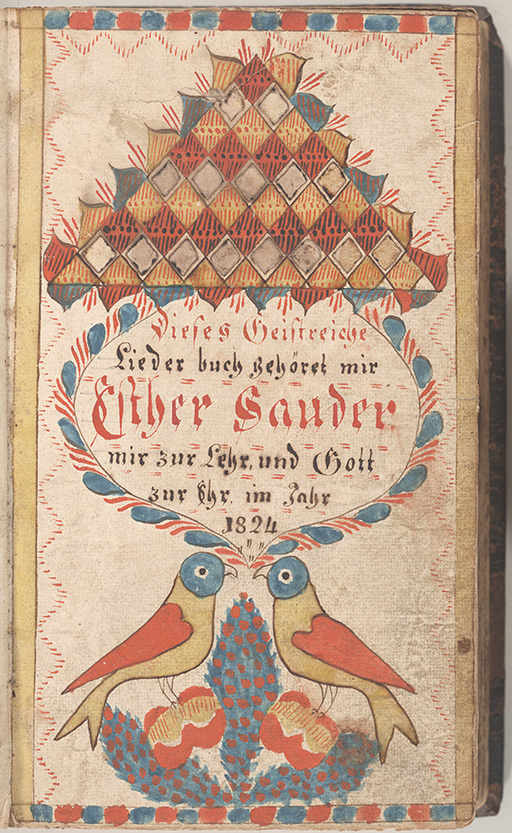 Dieses Geistreiche
Lieder buch gehöret mir
Esther Sauder
mir zur Lehr, und Gott
zur Ehr, im Jahr
1824